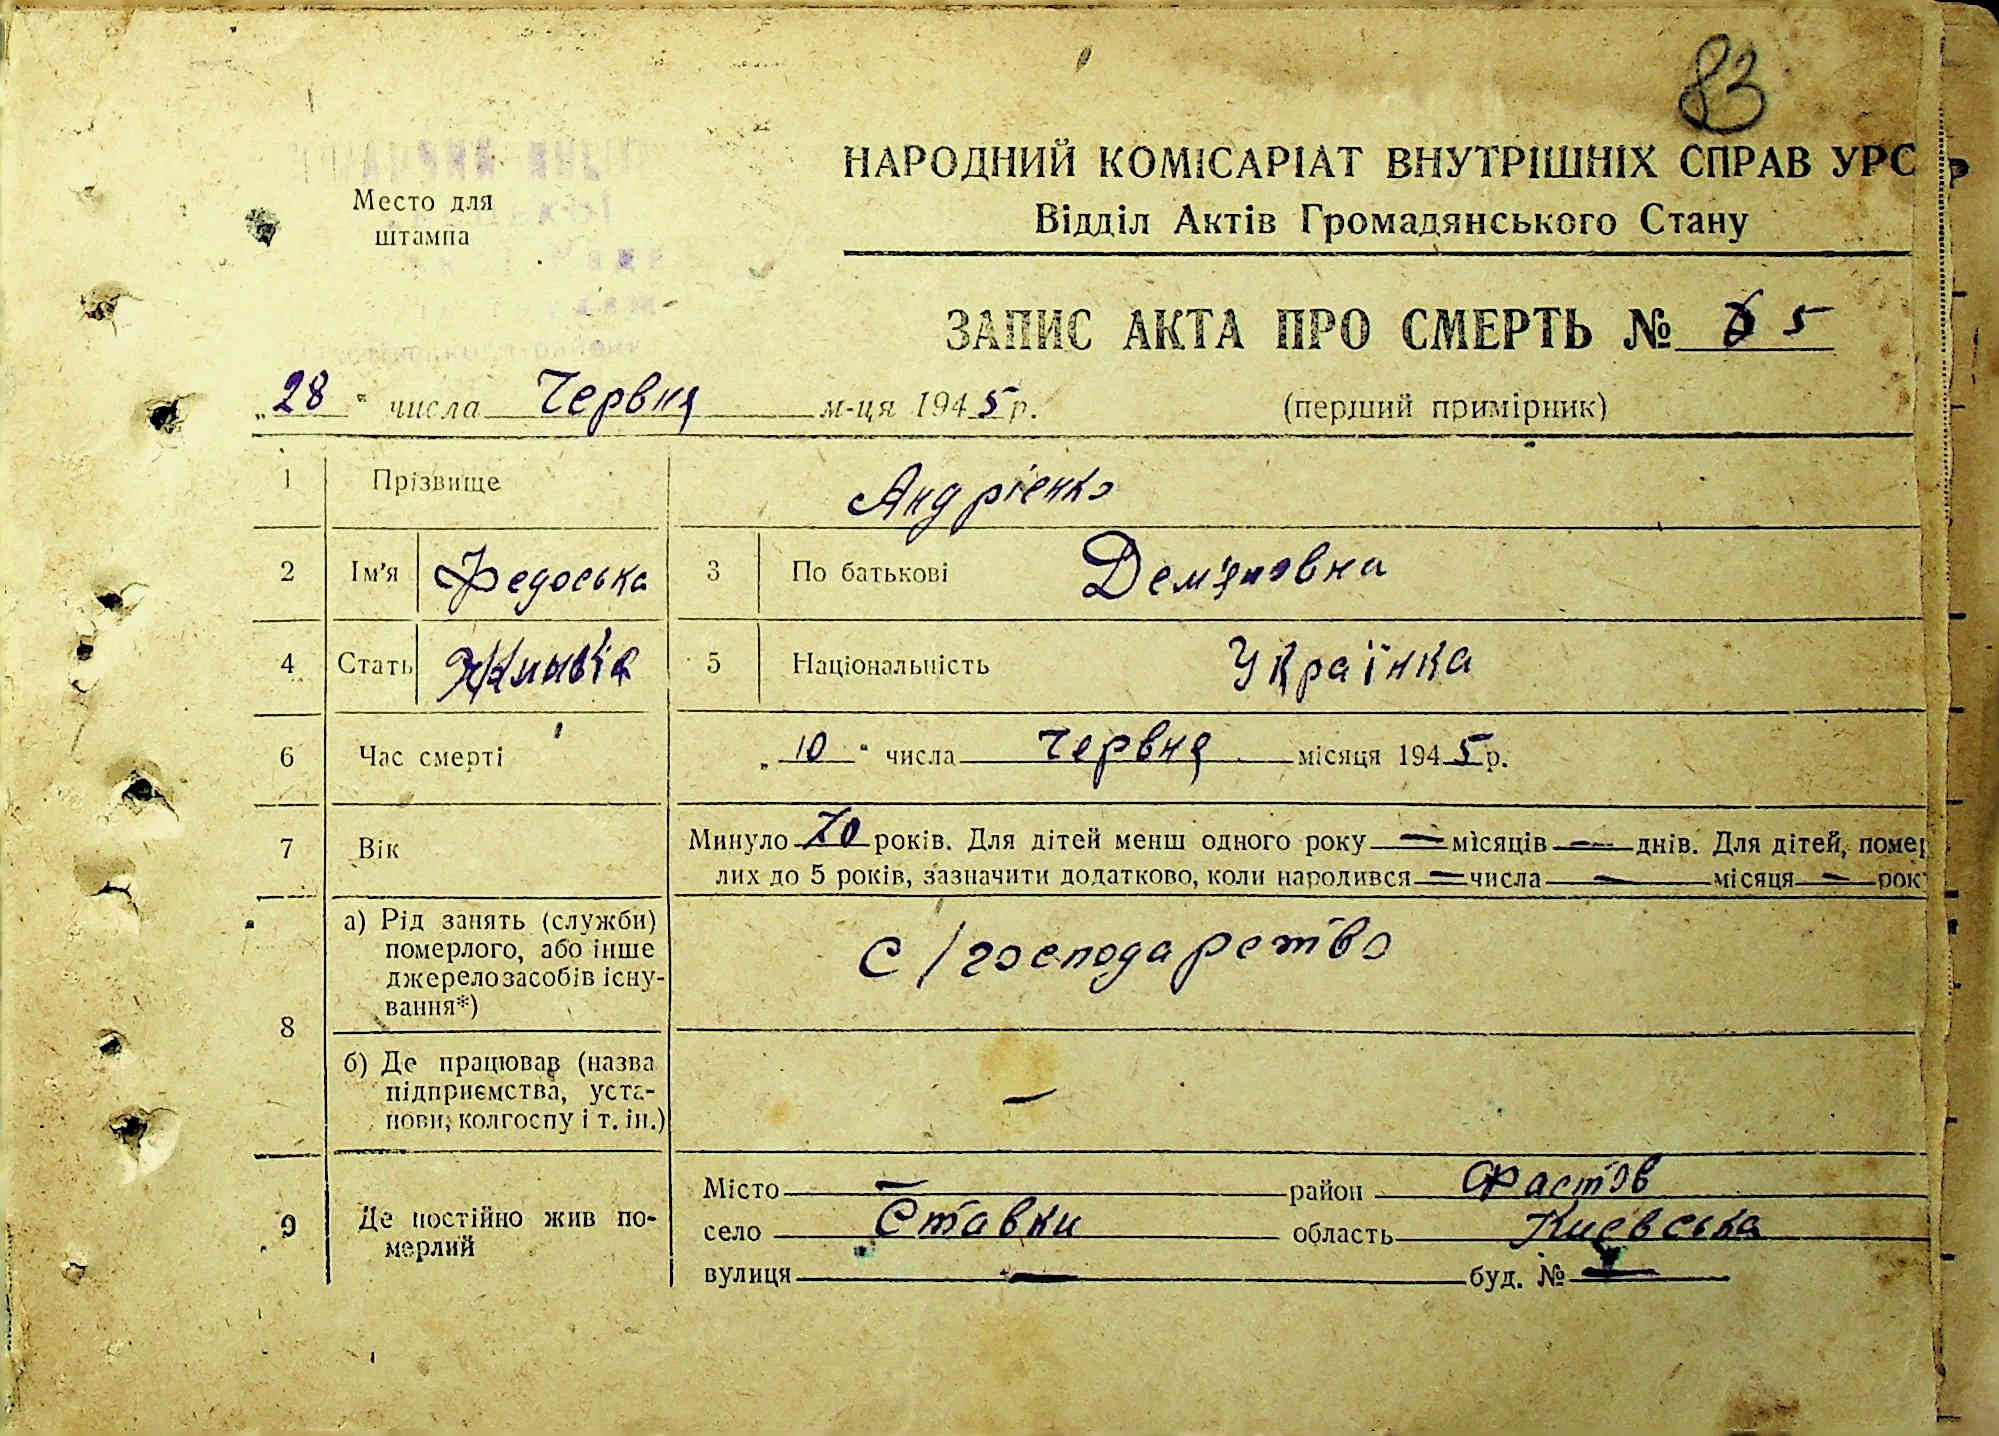 83
НАРОДНИЙ КОМІСАРІАТ ВНУТРІШНІХ СПРАВ УРС
Відділ Актів Громадянського Стану
Место для
штампа
ЗАПИС АКТА ПРО СМЕРТЬ № 65
„28“ числа Червня м-ця 1945 р.
(перший примірник)
1 Прізвище Андрієнко
2 Ім'я Федоська 3 По батькові Дем'яновна
4 Стать 5 Національність Українка
6 Час смерті „10“ числа Червня місяця 1945 р.
7 Вік Минуло 70 років. Для дітей менш одного року — місяців — днів. Для дітей, помер
лих до 5 років, зазначити додатково, коли народився — числа — місяця — рок
8 а) Рід занять (служби)
померлого, або інше
джерело засобів існу-
вання*)
с/господарство
б) Де працював (назва
підприємства, уста-
нови, колгоспу і т. ін.)
—
9 Де постійно жив по-
мерлий
Місто — район Фастов
село Ставки область Киевська
вулиця — буд. № —